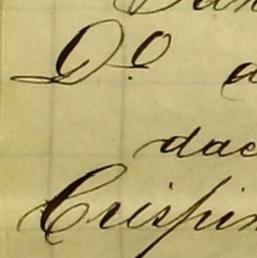 D.º a
dac
Crispin